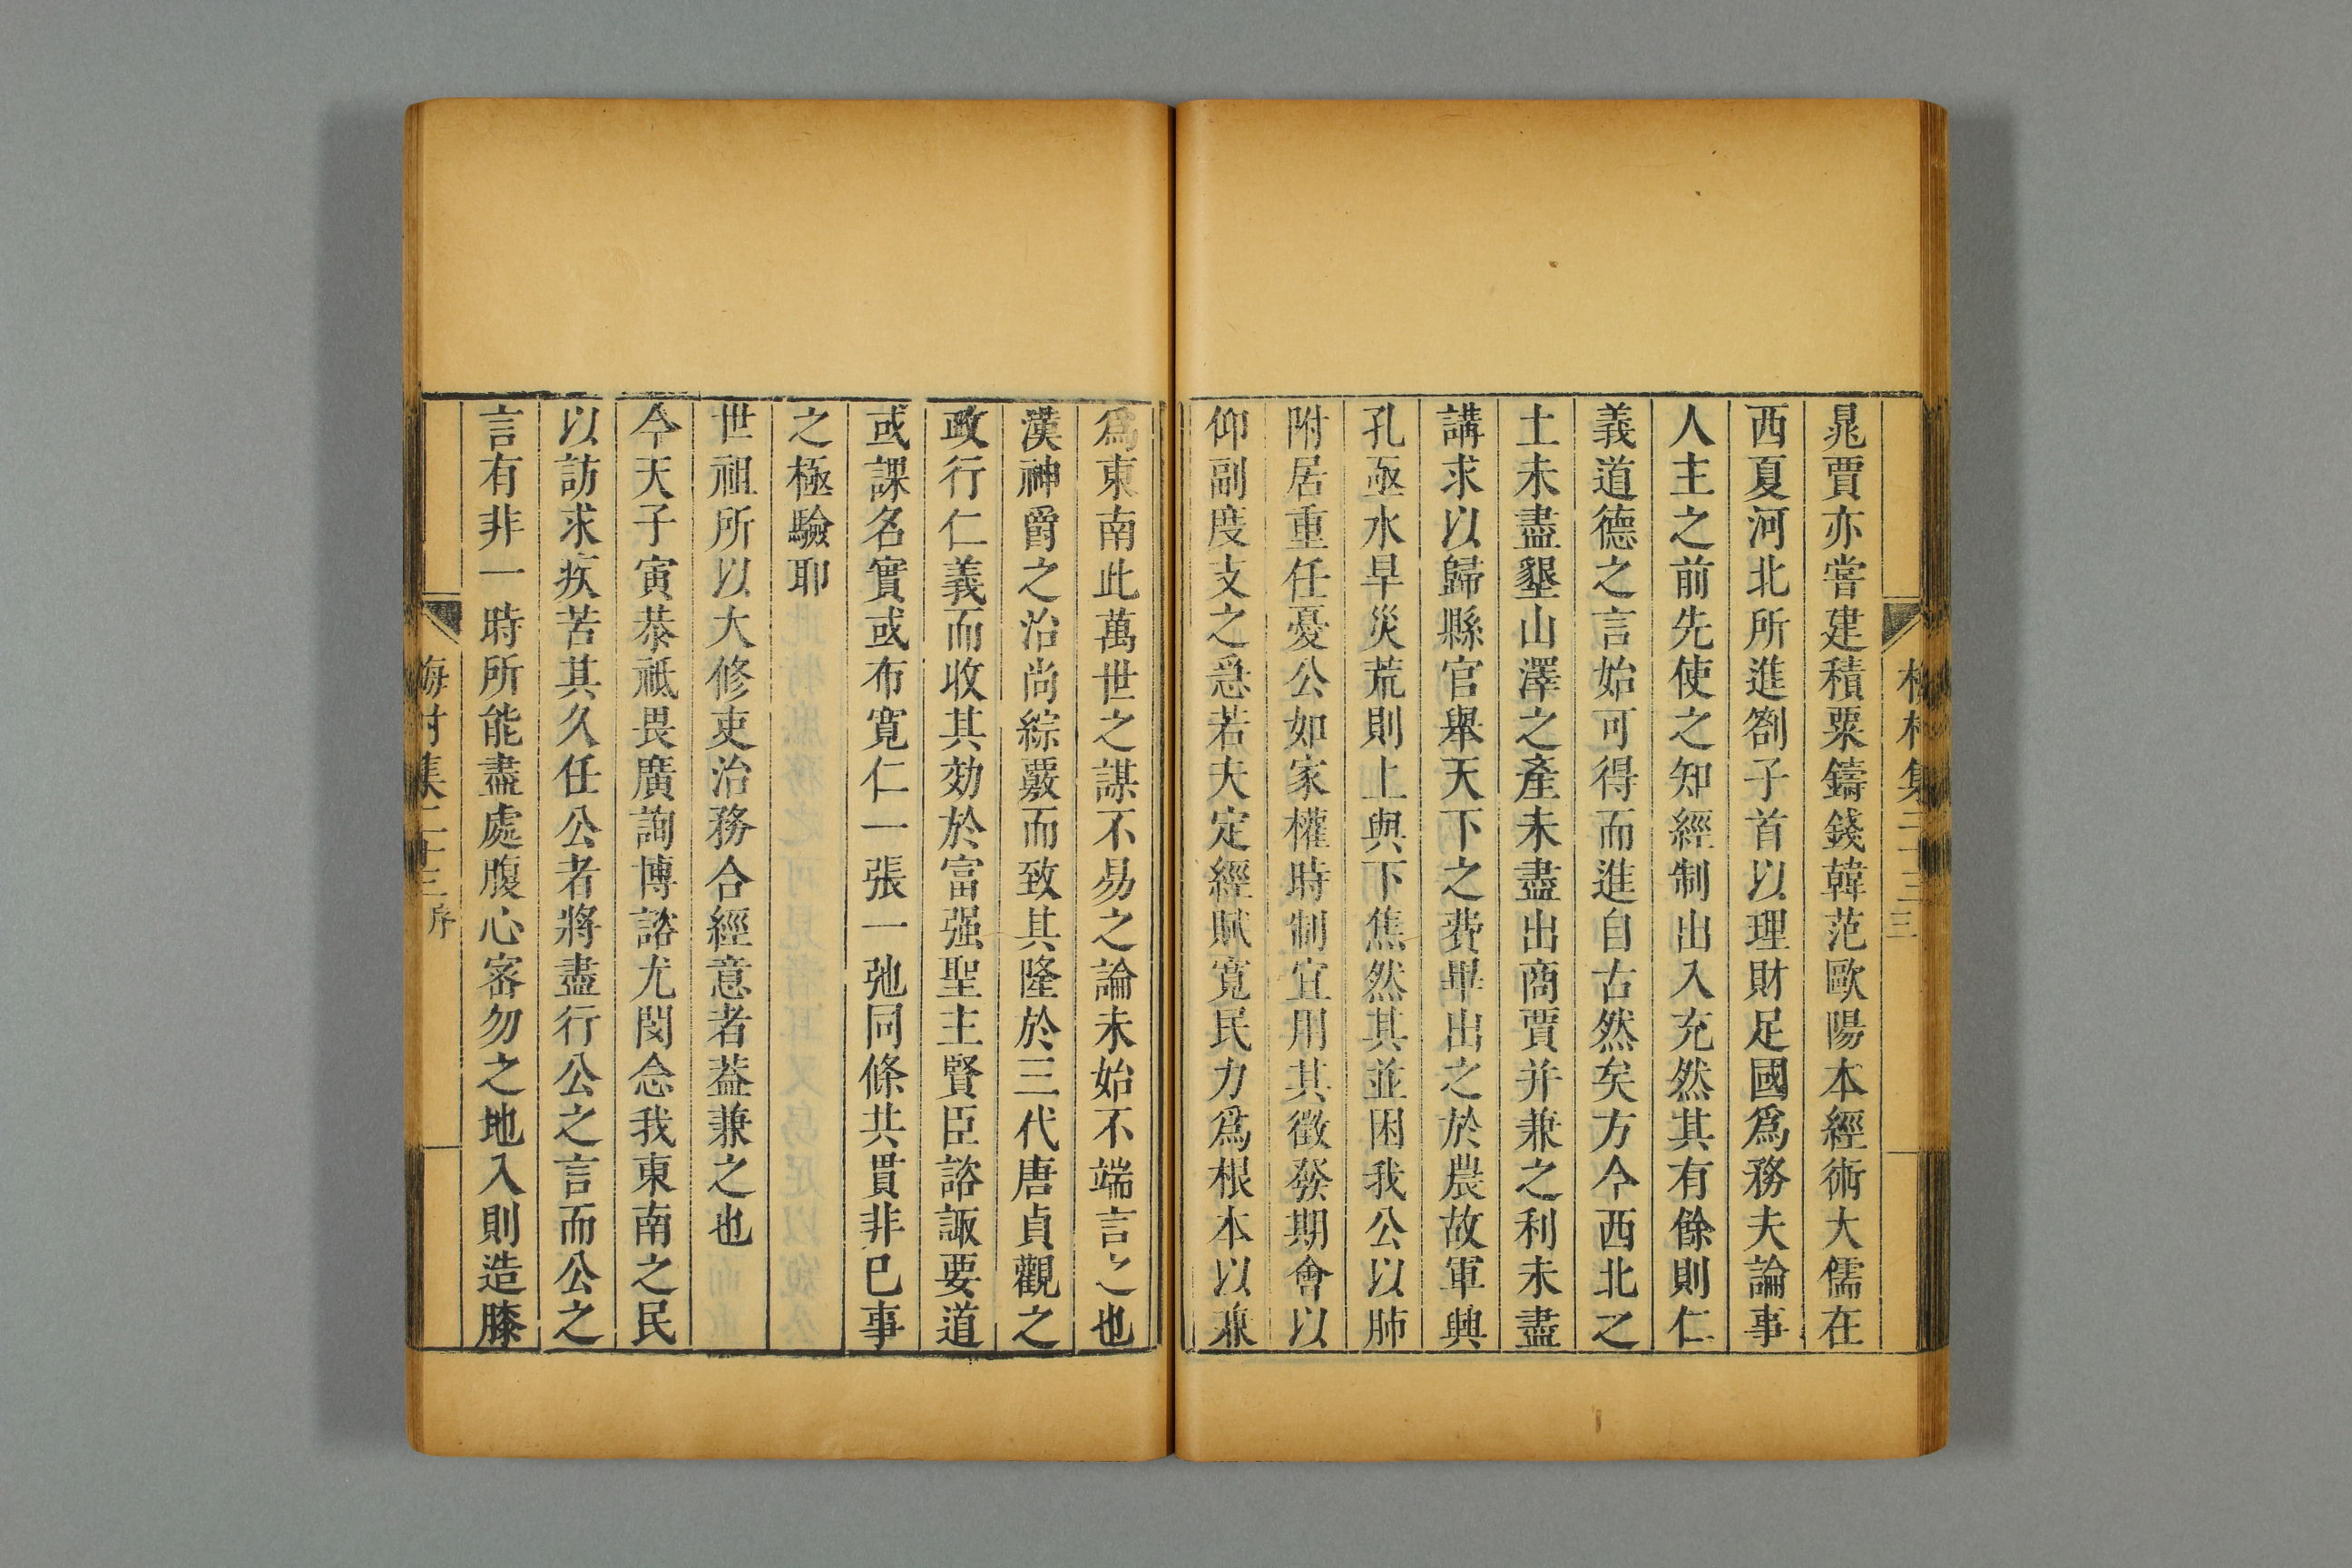 晁賈亦嘗建積粟鑄錢韓范歐陽本經術大儒在
西夏河北所進劄子首以理財足國爲務夫論事
人主之前先使之知經制出入充然其有餘則仁
義道德之言始可得而進自古然矣方今西北之
土未盡墾山澤之產未盡出商賈并兼之利未盡
講求以歸縣官舉天下之費畢出之於農故軍興
孔亟水旱災荒則上與下焦然其並困我公以肺
附居重任憂公如家權時制宜用其徵發期會以
仰副度支之急若夫定經賦寬民力爲根本以兼
爲東南此萬世之謀不易之論未始不端言之也
漢神爵之治尚綜覈而致其隆於三代唐貞觀之
政行仁義而收其効於富强聖主賢臣諮諏要道
或課名實或布寬仁一張一弛同條共貫非已事
之極驗耶
世祖所以大修吏治務合經意者葢兼之也
今天子寅恭祗畏廣詢博諮尤閔念我東南之民
以訪求疾苦其久任公者將盡行公之言而公之
言有非一時所能盡處腹心密勿之地入則造膝
梅村集二十三 序